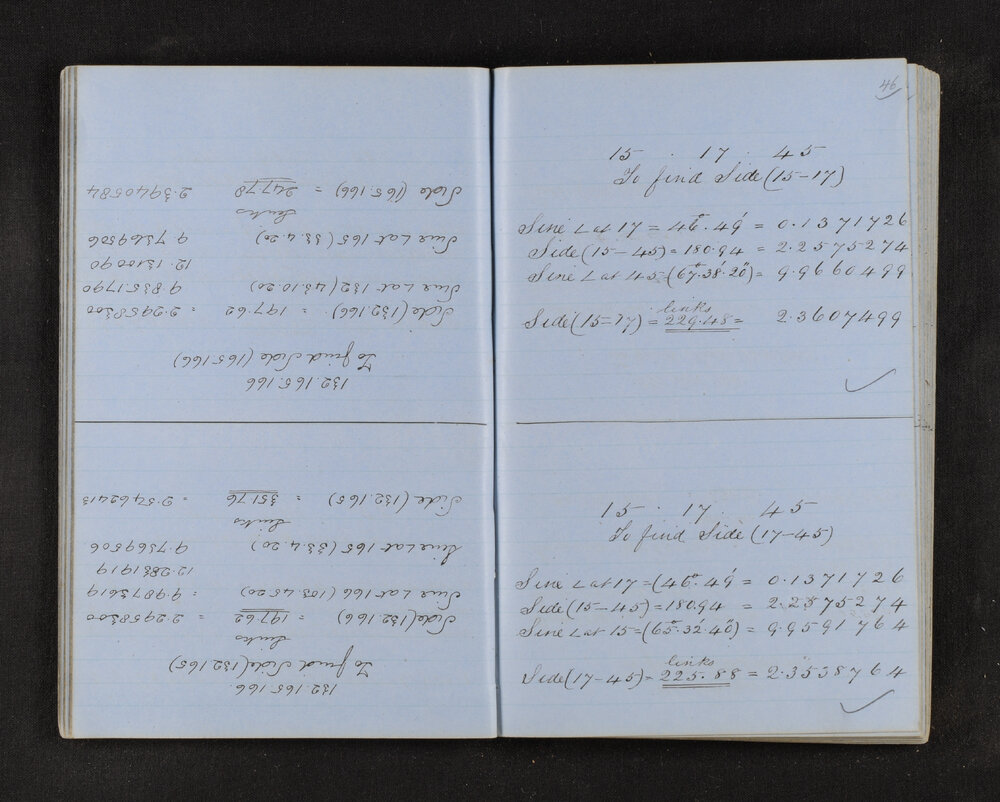 132.165.166
To find Side (132.165)
Links
Side (132.166) = 197.62 = 2.2958300
Sine ∠ at 166 (103.45.20) 9.9873619
12.2831919
Sine ∠ at 165 (33.4.20) 9.7369506
Links
Side (132.165) = 351.76 = 2.5462413
132.165.166
To find Side (165.166)
Side (132.166) = 197.62 = 2.2958300
Sine ∠ at 132 (43.10.20) 9.8351790
12.1310090
Sine ∠ at 165 (33.4.20) 9.7369506
Links
Side (165.166) = 247.78 2.3940584
46
15 . 17 . 45
To find Side (15-17)
Sine ∠ at 17 = 46°.49' = 0.1371726
Side (15-45) = 180.94 = 2.2575274
Sine ∠ at 45 = (67°.38'.20") = 9.9660499
links
Side (15-17) = 229.48 = 2.3607499
15 . 17 . 45
To find Side (17-45)
Sine ∠ at 17 = (46°.49' = 0.1371726
Side (15-45) = 180.94 = 2.2575274
Sine ∠ at 15 = (65°.32'.40") = 9.9591764
links
Side (17-45) = 225.88 = 2.3538764